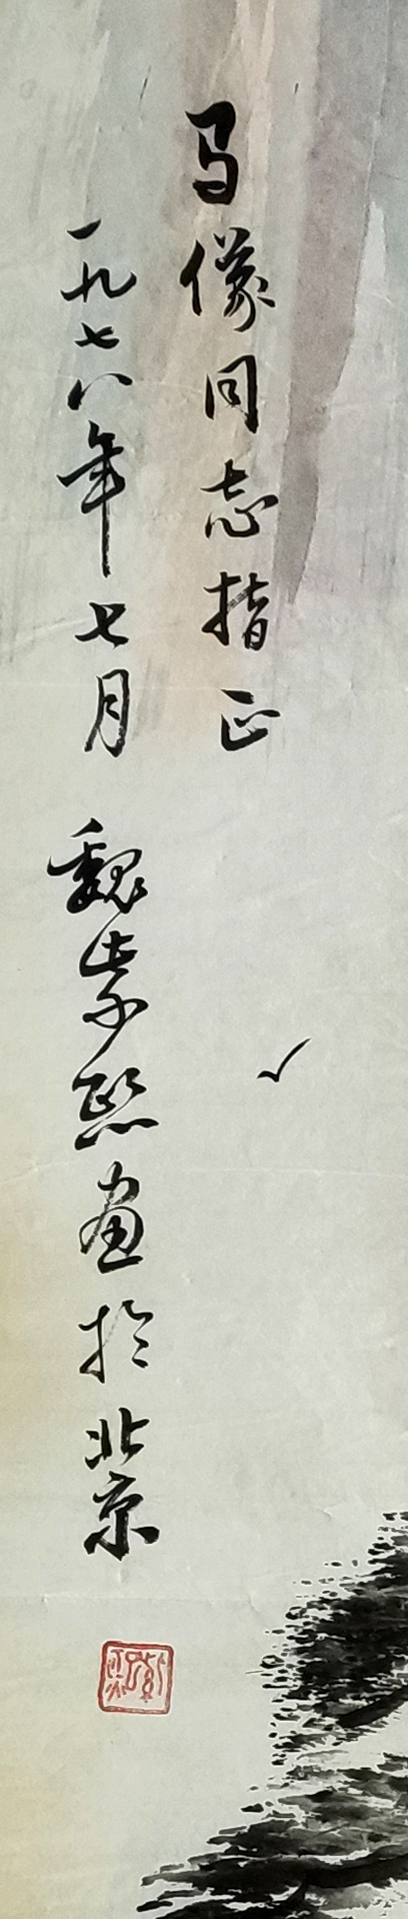 马像同志指正
一九七八年七月 魏紫熙画于北京
紫熙